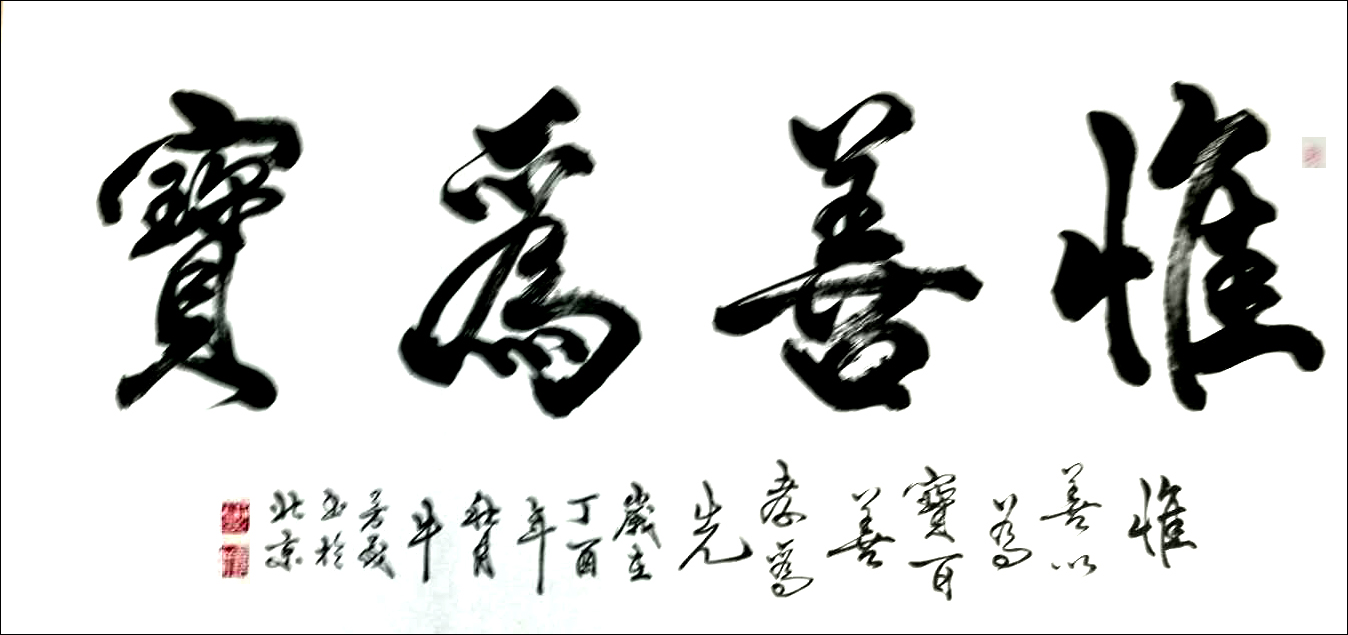 惟善爲寶
惟
善以
爲
寶百
善
孝爲
先
歲在
丁酉
年
秋月
牛
芳
书於
北京